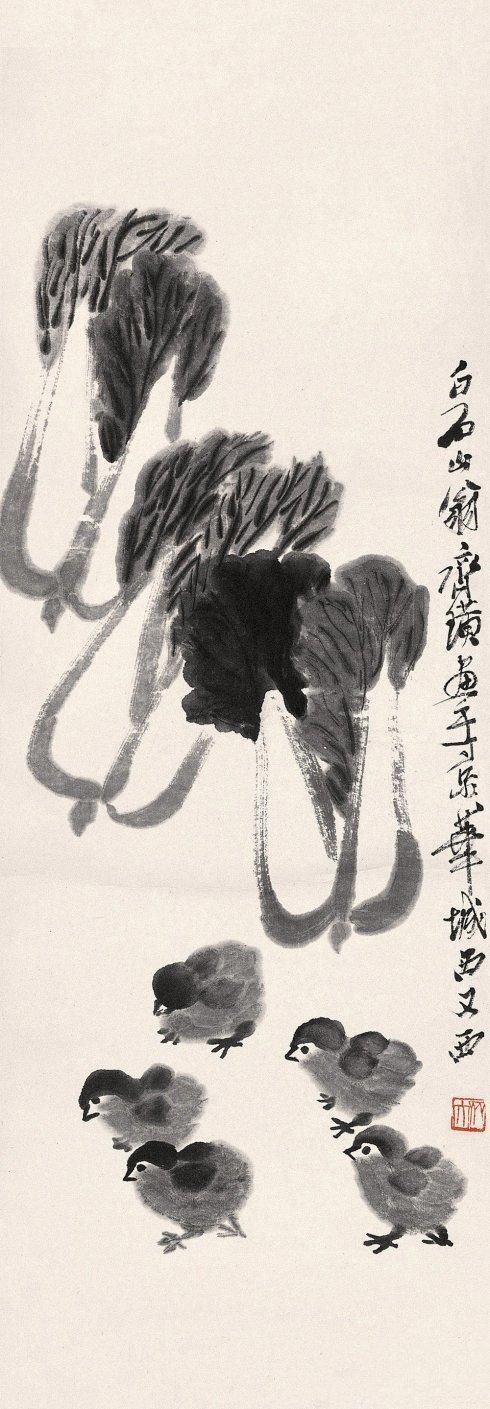 白石山翁齊璜畫于京華城西又西